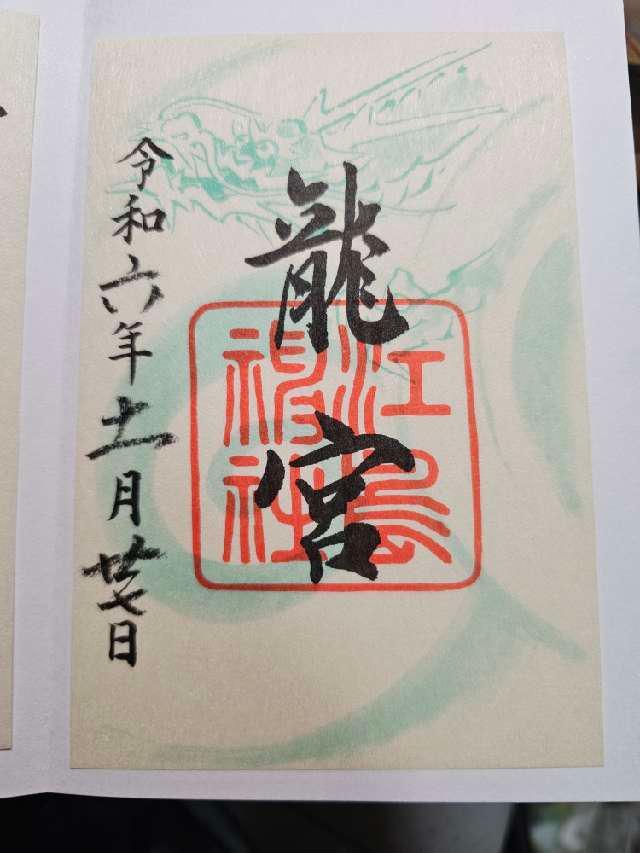 龍宮
江島
神社
令和六年十一月廿七日